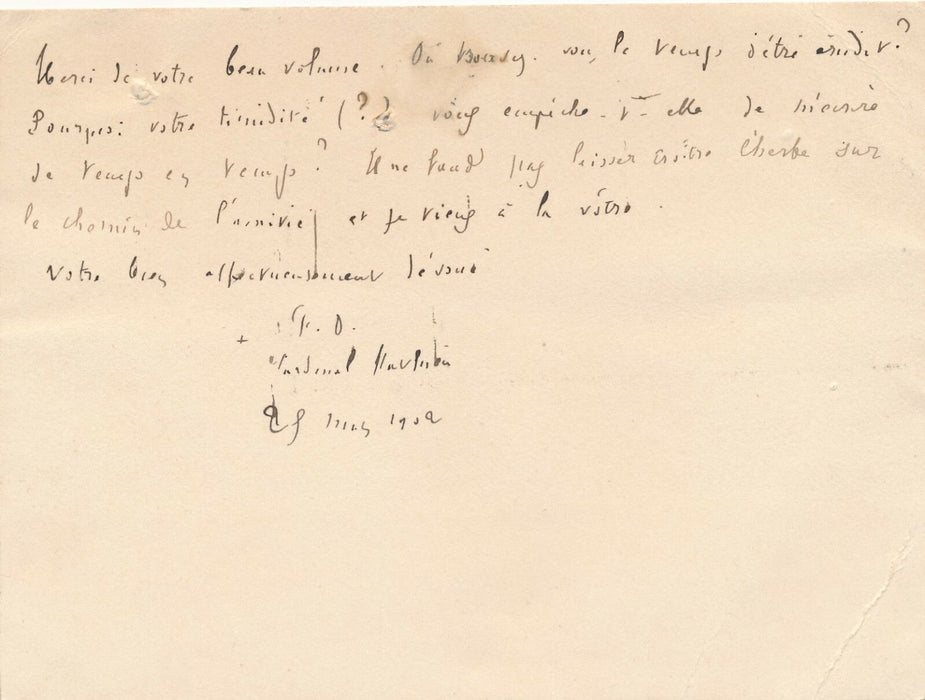 Merci de votre beau volume. Où trouvez-vous le temps d'être érudit ?
Pourquoi votre timidité (?) vous empêche-t-elle de m'écrire
de temps en temps ? Il ne faut pas laisser croître l'herbe sur
le chemin de l'amitié et je tiens à la vôtre.
Votre bien affectueusement dévoué
+ F. D.
Cardinal Mathieu
25 1902